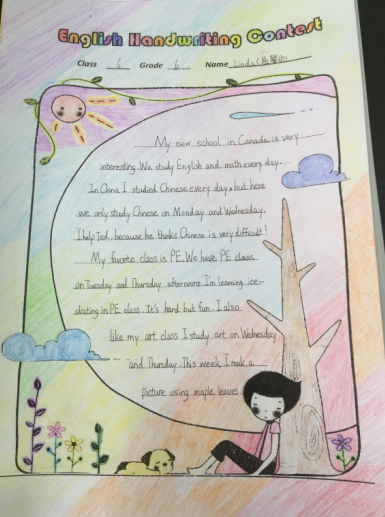 English Handwriting Contest
Class 6 Grade 6 Name Linda
My new school in Canada is very
interesting. We study English and math every day.
In China I studied Chinese every day, but here
we only study Chinese on Monday and Wednesday.
I help Ted, because he thinks Chinese is very difficult!
My favorite class is PE. We have PE class
on Tuesday and Thursday afternoons. I'm learning ice-
skating in PE class. It's hard but fun. I also
like my art class I study art on Wednesday
and Thursday. This week, I mak a
picture using maple leaves.